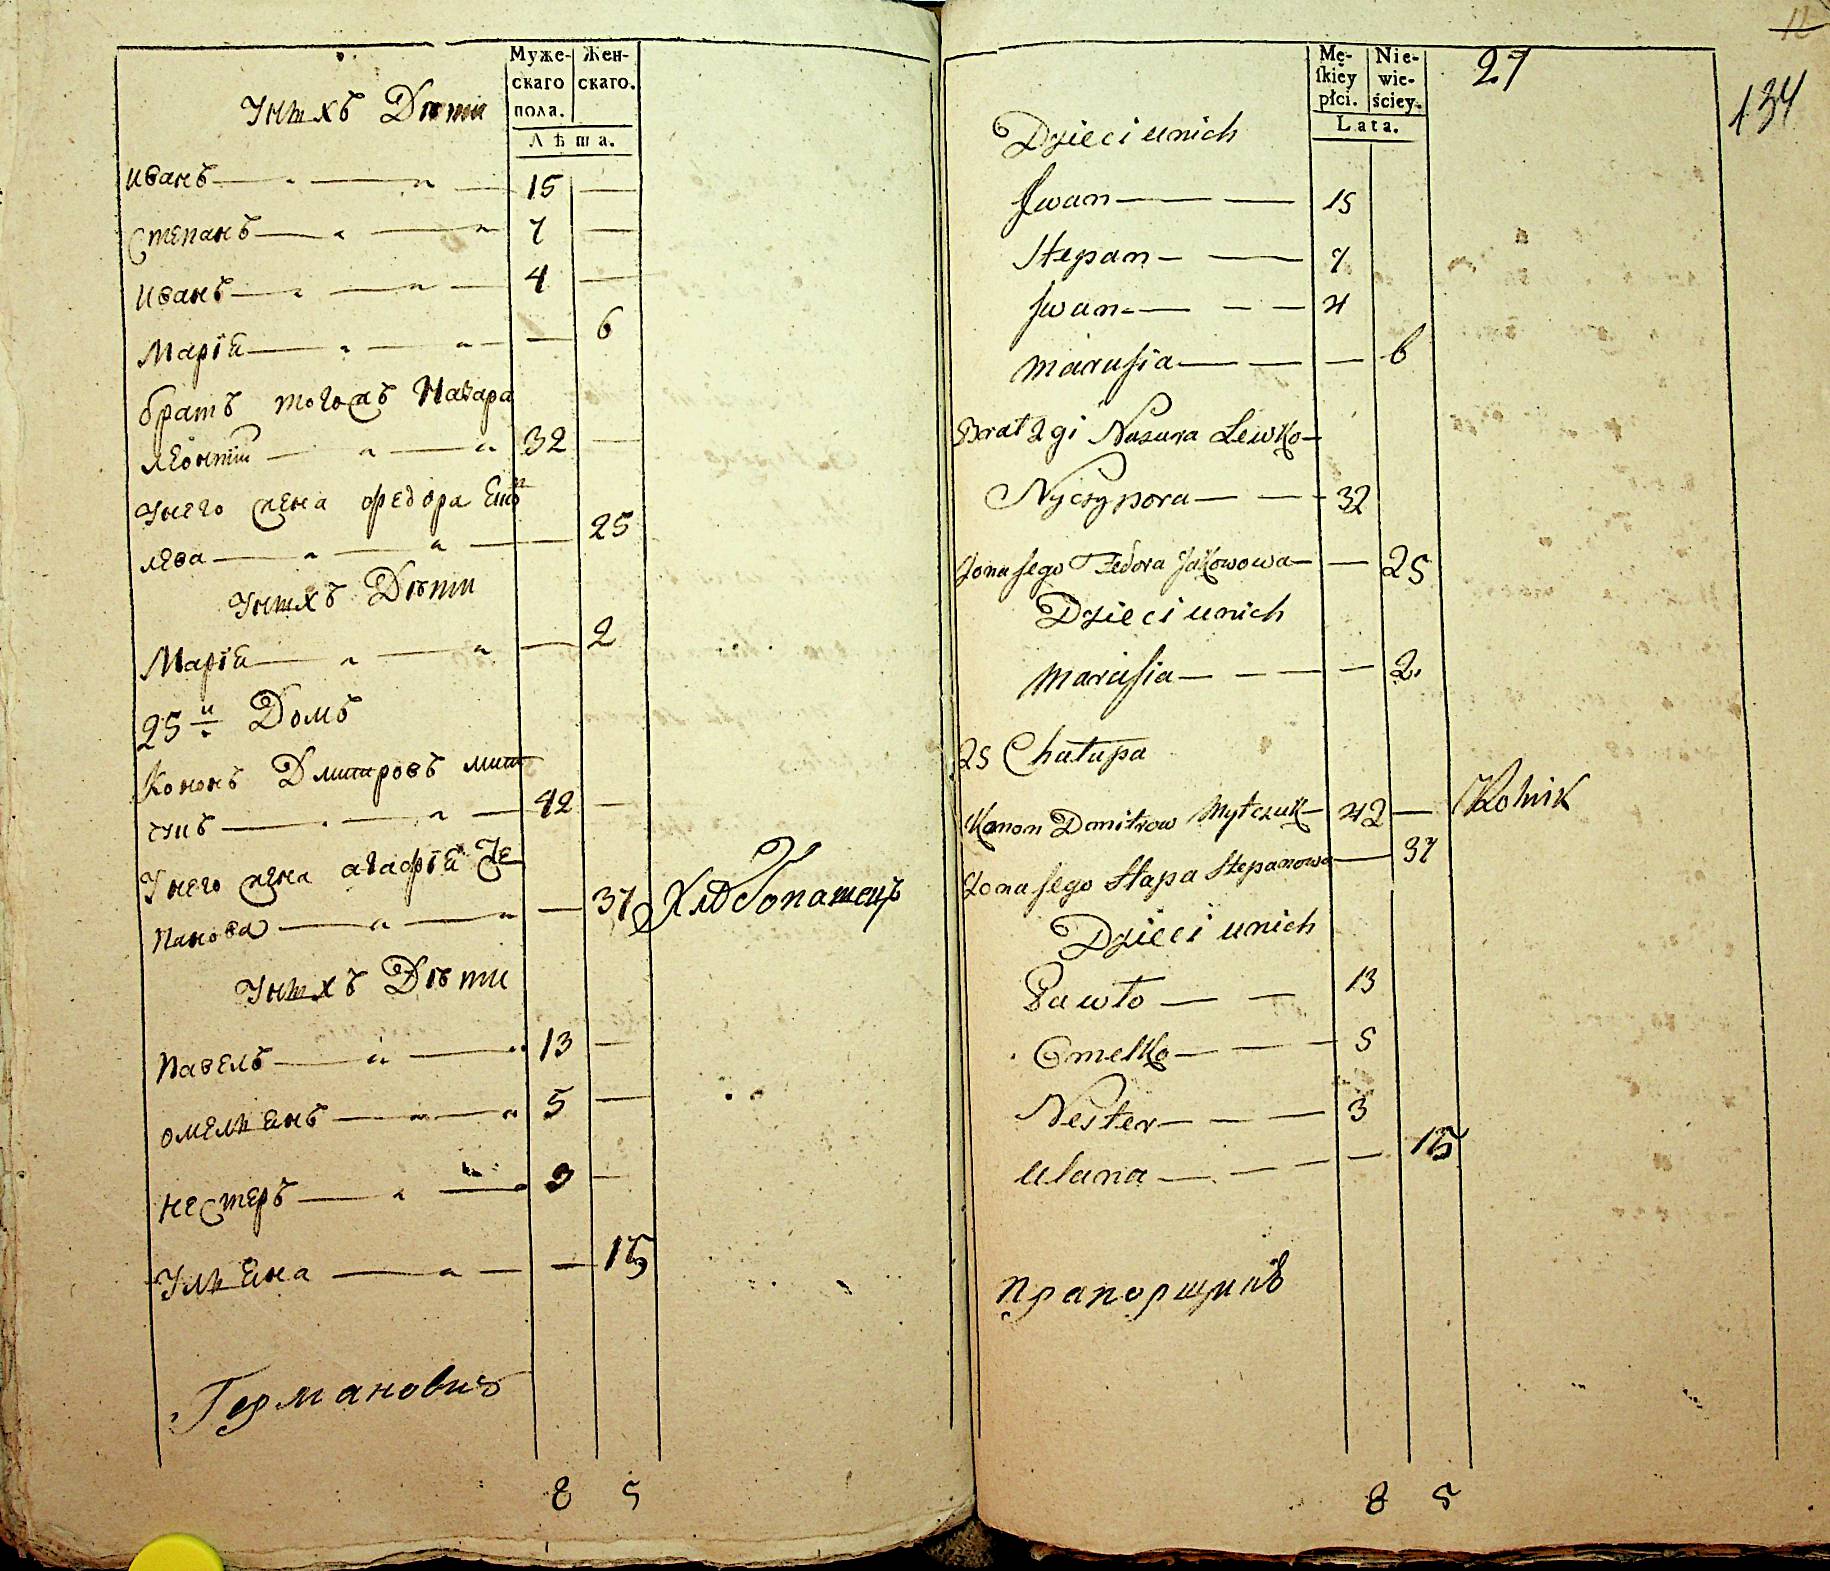 Муже- Жен-
скаго скаго.
пола.
Лѣта.
У нихъ Дѣти
Иванъ 15
Степанъ 7
Иванъ 4
Марія 6
братъ тогожъ Назара
Леонтій 32
У него жена федора
лева 25
У нихъ Дѣти
Марія 2
25 й Домъ
Кононъ Дмитровъ мит
чукъ 42
У него жена агафія Сте
панова 37 Хлѣбопашецъ
У нихъ Дѣти
Павелъ 13
омельянъ 5
нестеръ 3
Ульяна 15
Германовичъ
8 5
12
27
134
Mę- Nie-
skiey wie-
płci. ściey.
Lata.
Dzieci unich
Jwan 15
Stepan 7
Jwan 4
Marusia 6
Brat 2gi Nazura Lewko
Nyczypora 32
Zona jego Fedora Jakowowa 25
Dzieci unich
Marusia 2.
25 Chałupa
Konon Dmitrow Mytczuk 42 Rolnik
Zona jego Hapa Stepanowa 37
Dzieci unich
Pawło 13
Omelko 5
Nester 3
Ulana 15
прапорщикъ
8 5